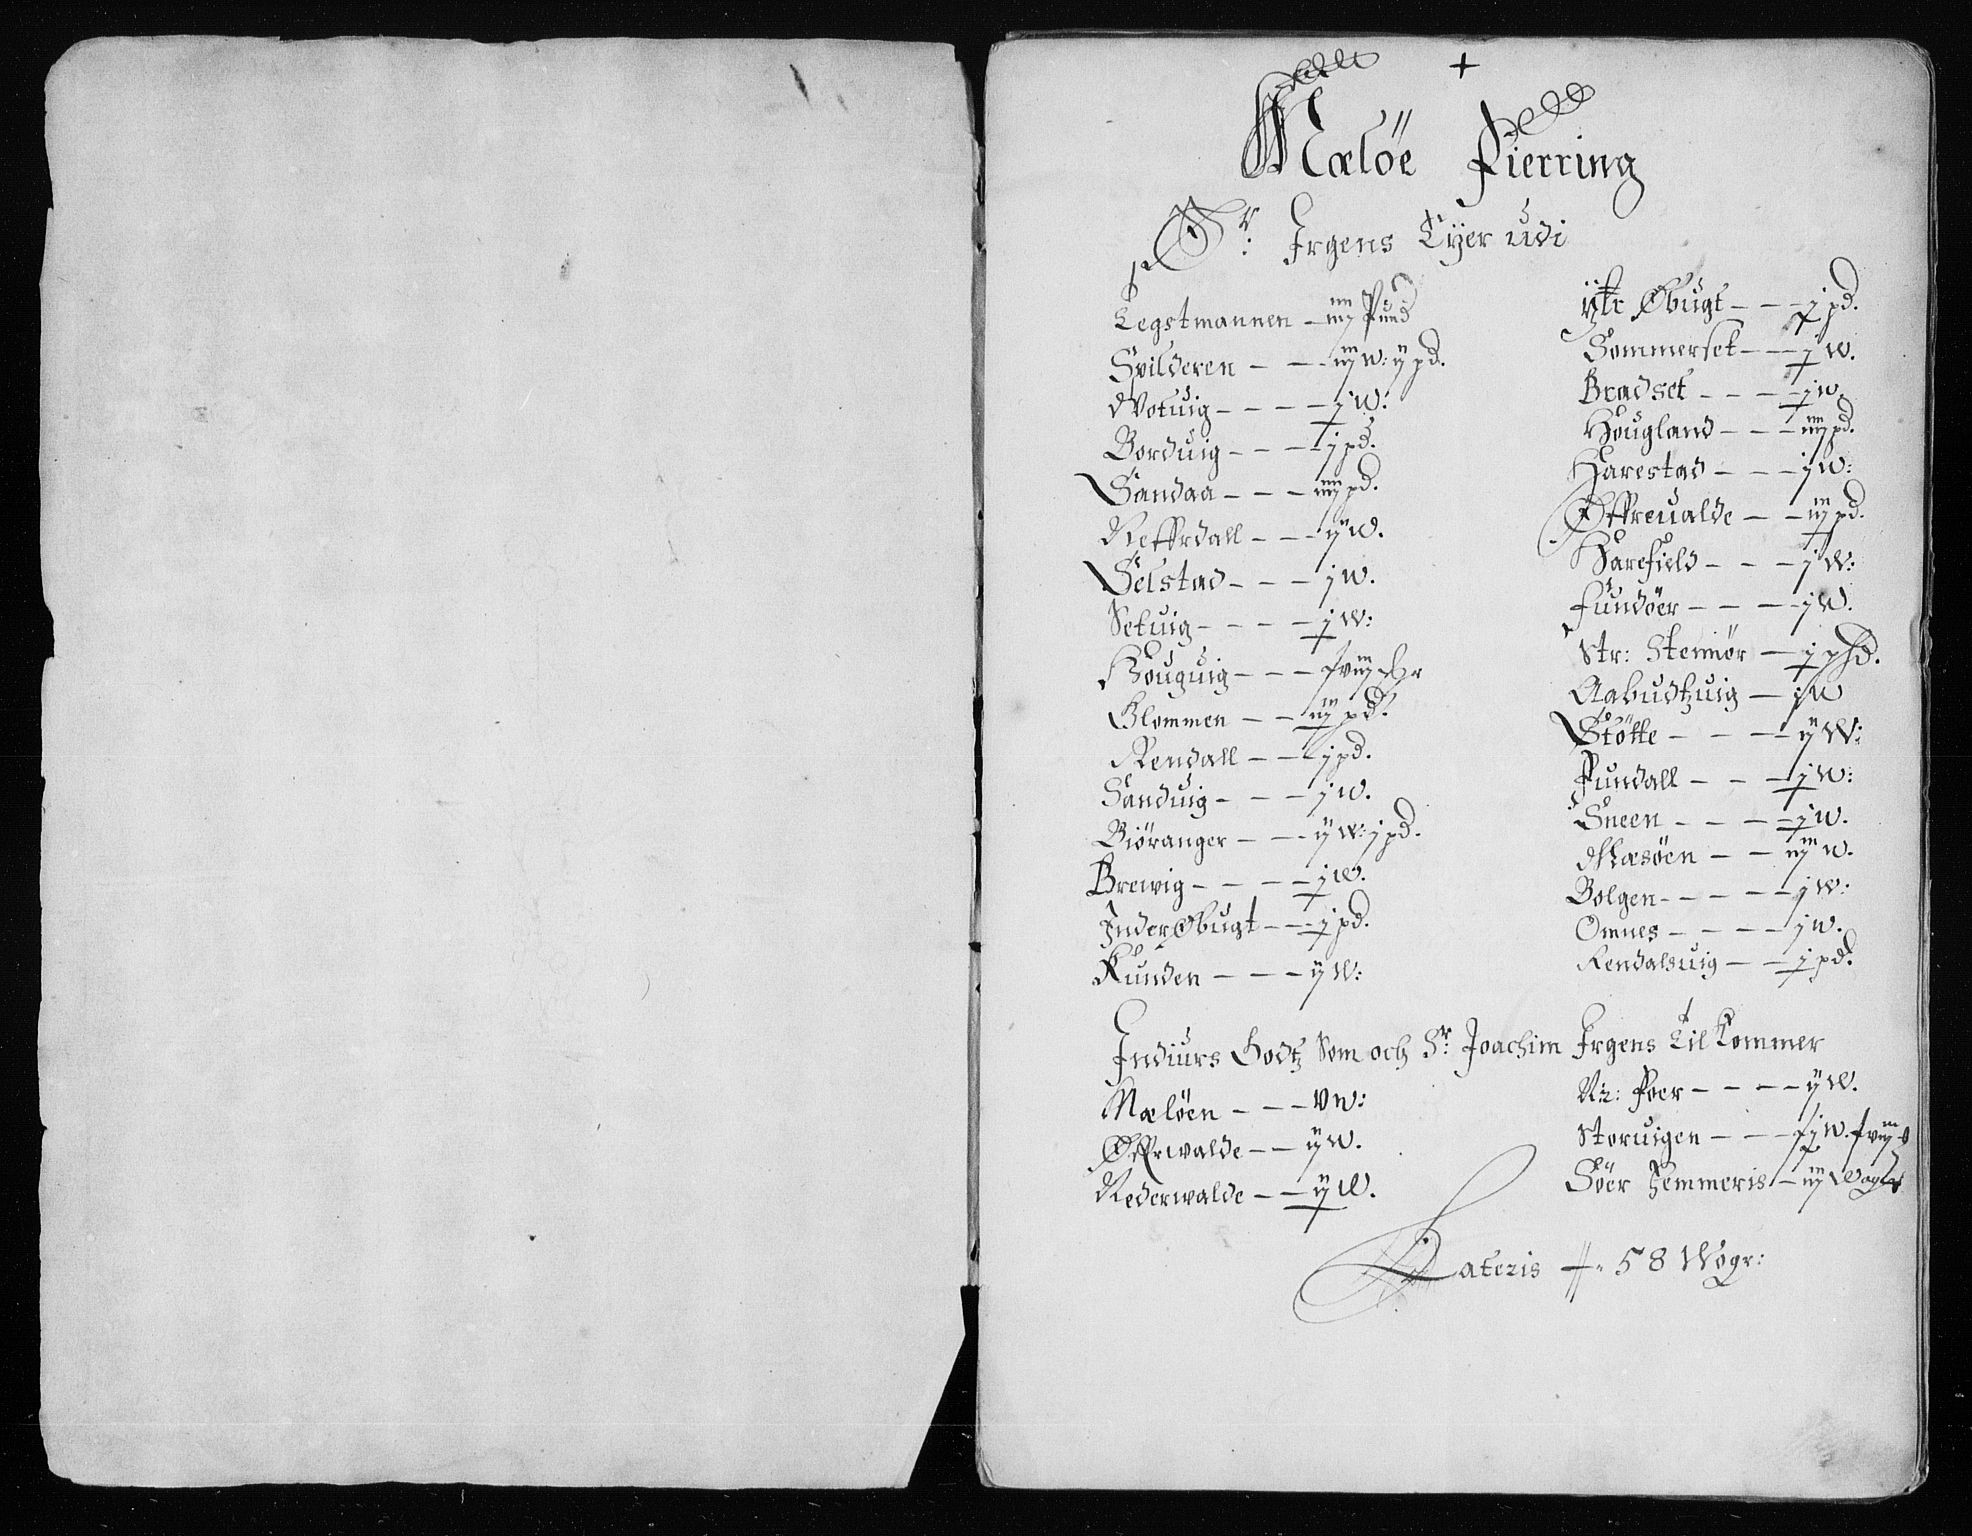 +
Mæløe Fierring
Sr: Irgens Eÿer udi
Legstmannen - iiij Pund
Spilderen - - iij w: ij pd.
Wotuig - - - - j w:
Borduig - - - j pd.
Sandaa - - - iiij pd.
Reffrdall - - - ij w.
Selstad - - - j w.
Setuig - - - - j w:
Houguig - - -
Glommen - - iij pd.
Rendall - - j pd.
Sanduig - - - j w.
Biøranger - - ij w: j pd.
Brewig - - - - j w.
Inder Øbugt - - j pd.
Kunden - - - ij w:
ÿtr Øbugt - - - j pd.
Sommerset - - j w.
Bradset - - - j w.
Hougland - - - iiij pd.
Harestad - - - j w:
Øffreualde - - iij pd.
Harefield - - - j w:
Fundøer - - - j w.
Str: Stennør - j pd.
Aabudtzuig - j w
Støtte - - - ij w:
Fundall - - - j w:
Sneen - - - - j w.
Mæsøen - - iij w.
Bolgen - - - - j w:
Omnes - - - - j w.
Rendalsuig - - j pd.
Indiurs Godtz Som och Sr: Joachim Irgens Til Kommer
Mæløen - - - V w:
Øffrwalde - - ij w.
Nederwalde - - ij w.
Nr: Foer - - - - ij w.
Storuigen - - - j w.
Søer Hemmeris - iij Woger
Lateris - 58 Wogr: